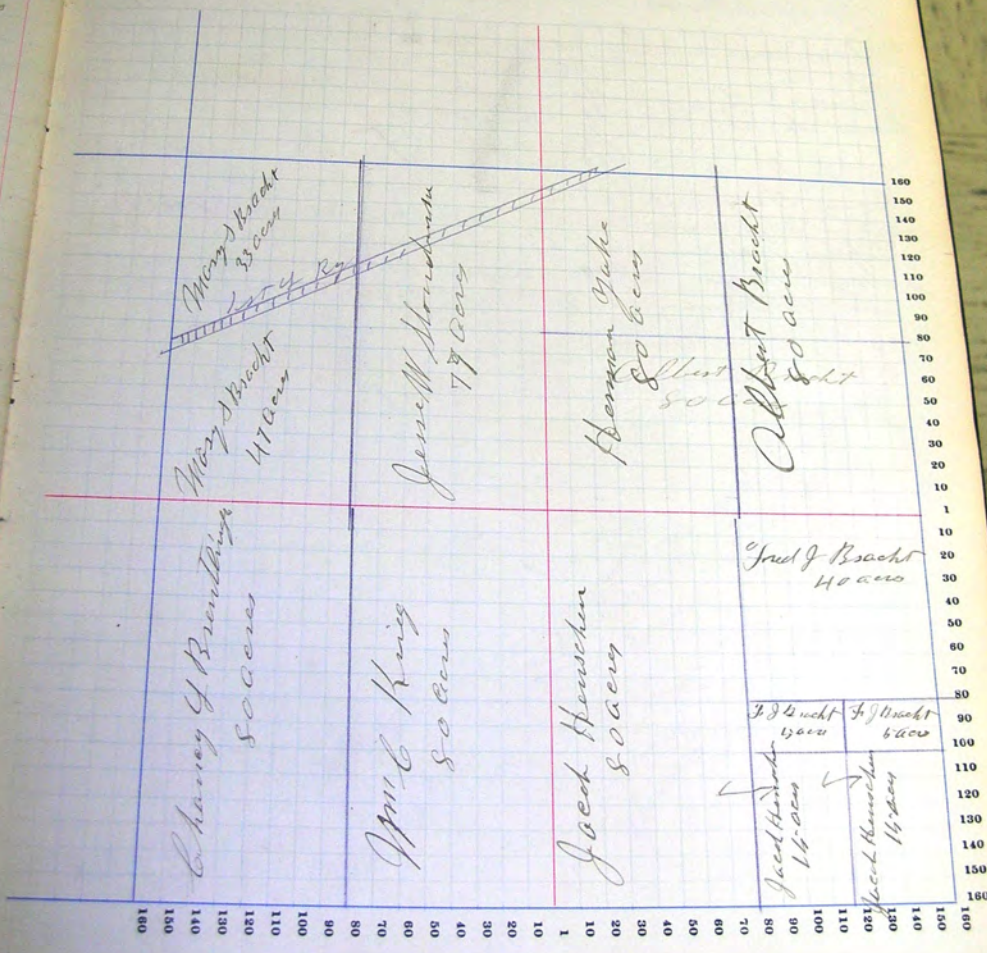 Mary S Bracht
33 acres
Ry
Mary S Bracht
47 acres
Jesse W
77 acres
Herman Yake
80 acres
Albert Bracht
80 acres
Albert Bracht
80 acres
Chancy G
80 acres
Wm C Krieg
80 acres
Jacob Henschen
80 acres
Fred J Bracht
40 acres
F J Bracht
5 acres
F J Bracht
5 acres
Jacob Henschen
15 acres
Jacob Henschen
15 acres
160
150
140
130
120
110
100
90
80
70
60
50
40
30
20
10
1
10
20
30
40
50
60
70
80
90
100
110
120
130
140
150
160
160
150
140
130
120
110
100
90
80
70
60
50
40
30
20
10
1
10
20
30
40
50
60
70
80
90
100
110
120
130
140
150
160